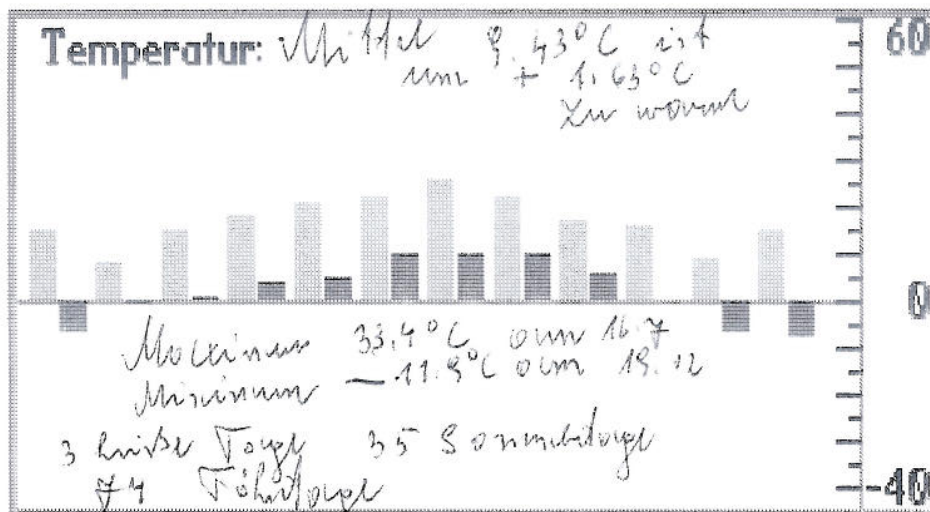 Temperatur: Mittel 9.43°C ist
um + 1.63°C
zu warm
60
0
Maximum 33,4°C am 16.7
Minimum - 11.9°C am 19.12
3 heiße Tage 35 Sommertage
74
-40